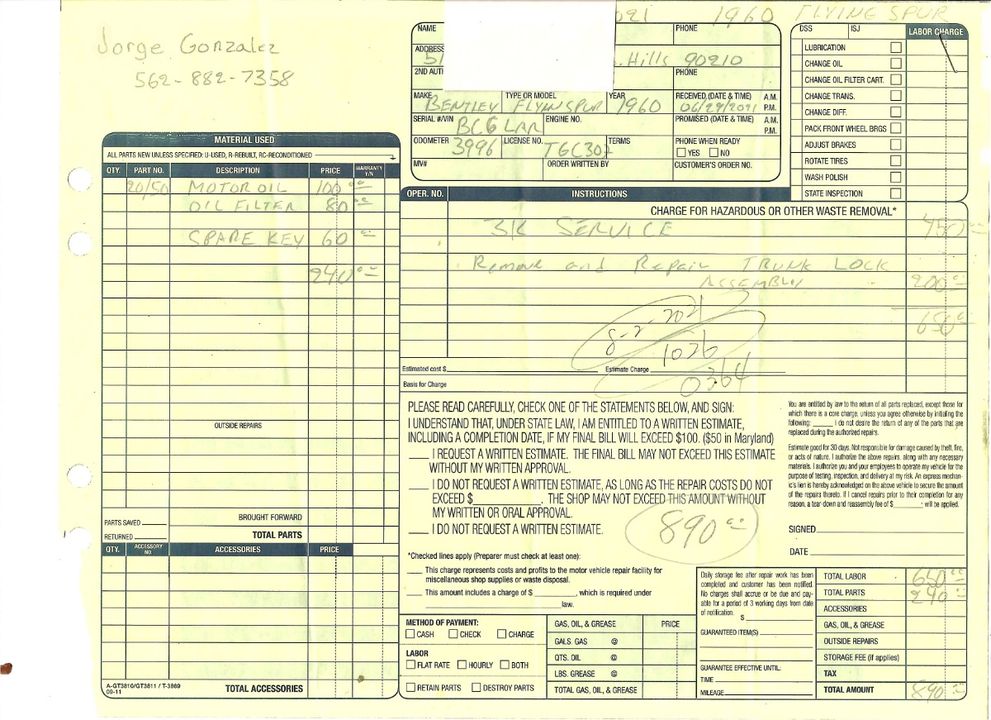 1960 FLYING SPUR
Jorge Gonzalez
562-882-7358
NAME
PHONE
ADDRESS
Hills 90210
2ND AUTH
PHONE
MAKE TYPE OR MODEL YEAR RECEIVED (DATE & TIME) A.M. P.M.
BENTLEY FLYINSPUR 1960
SERIAL #/VIN ENGINE NO. PROMISED (DATE & TIME) A.M. P.M.
BC6 LAR
ODOMETER LICENSE NO. TERMS PHONE WHEN READY
3996 TGC307 YES NO
MV# ORDER WRITTEN BY CUSTOMER'S ORDER NO.
DSS ISJ LABOR CHARGE
LUBRICATION
CHANGE OIL
CHANGE OIL FILTER CART.
CHANGE TRANS.
CHANGE DIFF.
PACK FRONT WHEEL BRGS
ADJUST BRAKES
ROTATE TIRES
WASH POLISH
STATE INSPECTION
MATERIAL USED
ALL PARTS NEW UNLESS SPECIFIED: U-USED, R-REBUILT, RC-RECONDITIONED
QTY. PART NO. DESCRIPTION PRICE WARRANTY Y/N
20/50 MOTOR OIL 100.00
OIL FILTER 80.00
SPARE KEY 60.00
240.00
OUTSIDE REPAIRS
PARTS SAVED
BROUGHT FORWARD
RETURNED
TOTAL PARTS
QTY. ACCESSORY NO ACCESSORIES PRICE
A-GT3810/GT3811 / T-3869
09-11
TOTAL ACCESSORIES
OPER. NO. INSTRUCTIONS
CHARGE FOR HAZARDOUS OR OTHER WASTE REMOVAL*
3K SERVICE 450.00
Remove and Repair TRUNK LOCK
ASSEMBLY 200.00
650.00
8-2-2021
1026
0364
Estimated cost $ Estimate Charge
Basis for Charge
PLEASE READ CAREFULLY, CHECK ONE OF THE STATEMENTS BELOW, AND SIGN:
I UNDERSTAND THAT, UNDER STATE LAW, I AM ENTITLED TO A WRITTEN ESTIMATE,
INCLUDING A COMPLETION DATE, IF MY FINAL BILL WILL EXCEED $100. ($50 in Maryland)
I REQUEST A WRITTEN ESTIMATE. THE FINAL BILL MAY NOT EXCEED THIS ESTIMATE
WITHOUT MY WRITTEN APPROVAL.
I DO NOT REQUEST A WRITTEN ESTIMATE, AS LONG AS THE REPAIR COSTS DO NOT
EXCEED $ . THE SHOP MAY NOT EXCEED THIS AMOUNT WITHOUT
MY WRITTEN OR ORAL APPROVAL.
I DO NOT REQUEST A WRITTEN ESTIMATE.
890.00
*Checked lines apply (Preparer must check at least one):
This charge represents costs and profits to the motor vehicle repair facility for
miscellaneous shop supplies or waste disposal.
This amount includes a charge of $ , which is required under
law.
You are entitled by law to the return of all parts replaced, except those for
which there is a core charge, unless you agree otherwise by initialing the
following: I do not desire the return of any of the parts that are
replaced during the authorized repairs.
Estimate good for 30 days. Not responsible for damage caused by theft, fire,
or acts of nature. I authorize the above repairs, along with any necessary
materials. I authorize you and your employees to operate my vehicle for the
purpose of testing, inspection, and delivery at my risk. An express mechan-
ic's lien is hereby acknowledged on the above vehicle to secure the amount
of the repairs thereto. If I cancel repairs prior to their completion for any
reason, a tear-down and reassembly fee of $ will be applied.
SIGNED
DATE
METHOD OF PAYMENT:
CASH CHECK CHARGE
LABOR
FLAT RATE HOURLY BOTH
RETAIN PARTS DESTROY PARTS
GAS, OIL, & GREASE PRICE
GALS. GAS @
QTS. OIL @
LBS. GREASE @
TOTAL GAS, OIL, & GREASE
Daily storage fee after repair work has been
completed and customer has been notified.
No charges shall accrue or be due and pay-
able for a period of 3 working days from date
of notification. $
GUARANTEED ITEM(S)
GUARANTEE EFFECTIVE UNTIL:
TIME
MILEAGE
TOTAL LABOR 650.00
TOTAL PARTS 240.00
ACCESSORIES
GAS, OIL, & GREASE
OUTSIDE REPAIRS
STORAGE FEE (if applies)
TAX
TOTAL AMOUNT 890.00